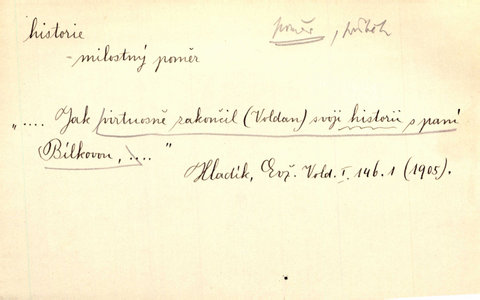 historie
poměr, příběh
- milostný poměr
„.... Jak virtuosně zakončil (Voldan) svoji historii s paní
Bílkovou, ...."
Hladík, Evž. Vold. I. 146.1 (1905).